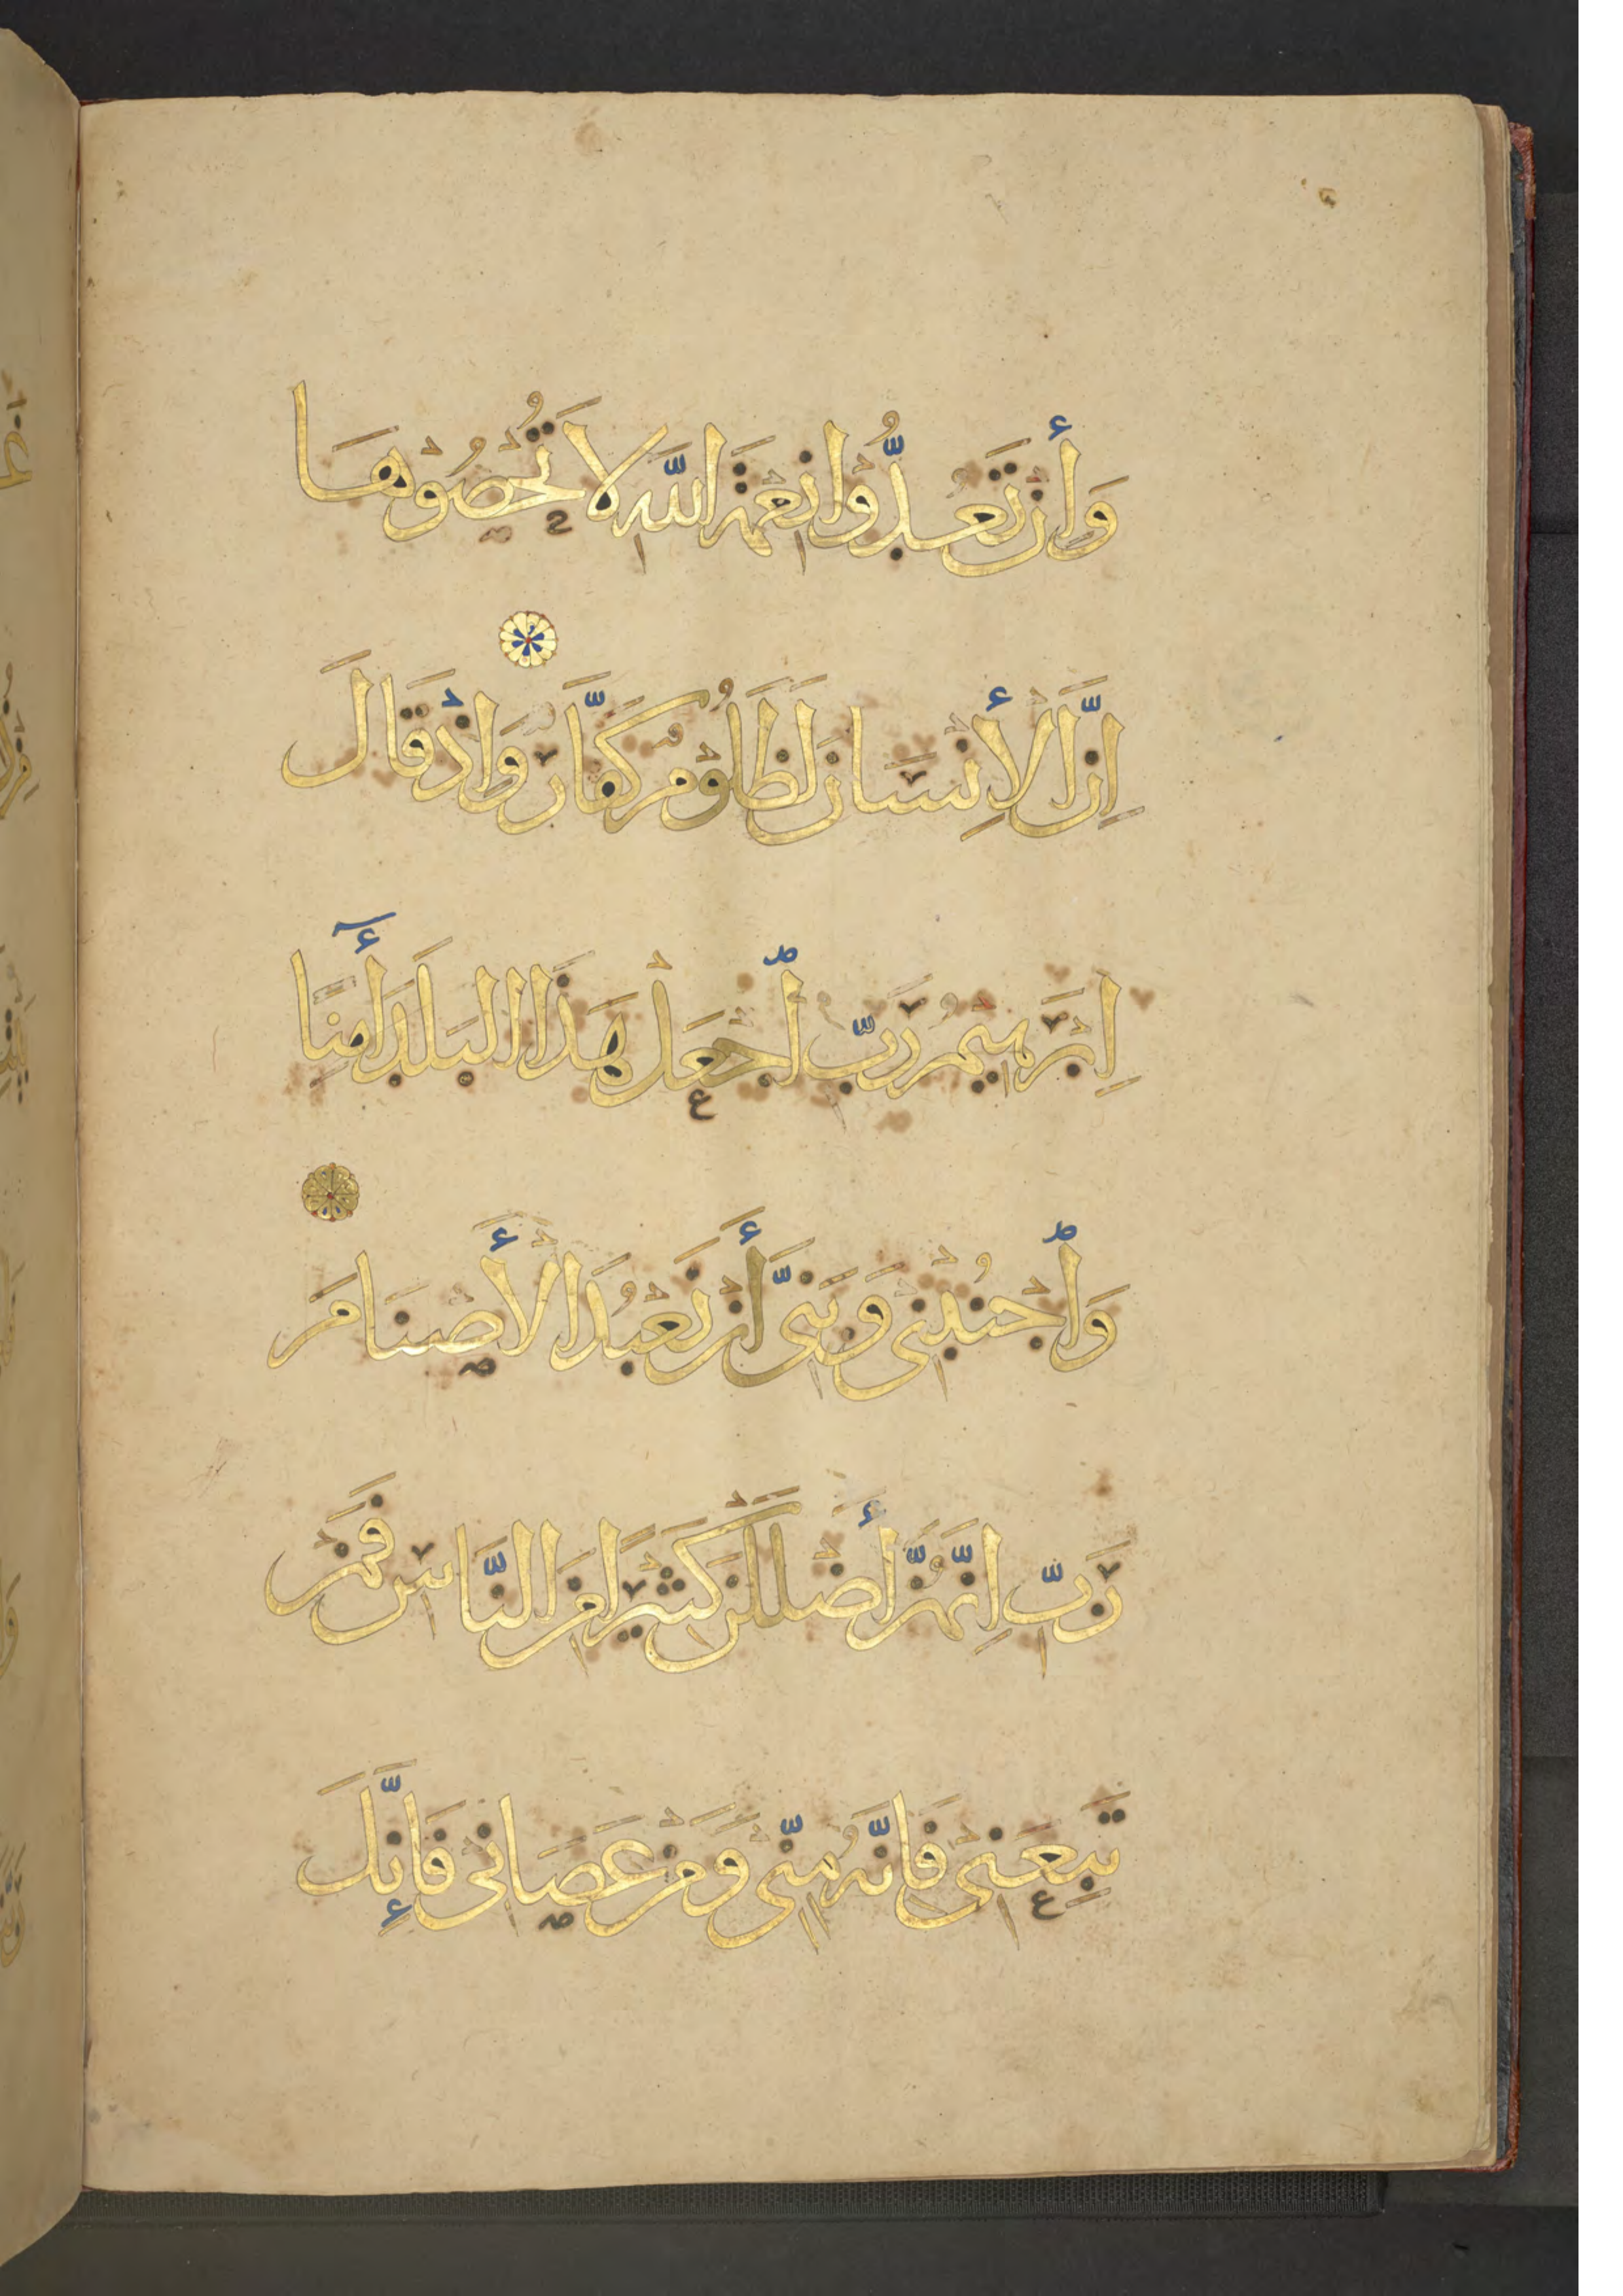 وَأَن تَعُدُّوا نِعْمَةَ اللَّهِ لَا تُحْصُوهَا
اِنَّ الْأِنْسَانَ لَظَلُومٌ كَفَّارٌ وَاِذْ قَالَ
اِبْرَهِيمُ رَبِّ اجْعَلْ هَذَا الْبَلَدَ أَمِنًا
وَاجْنُبْنِي وَبَنِيَّ أَنْ نَعْبُدَ الْأَصْنَامَ
رَبِّ اِنَّهُنَّ أَضْلَلْنَ كَثِيرًا مِنَ النَّاسِ فَمَنْ
تَبِعَنِي فَاِنَّهُ مِنِّي وَمَنْ عَصَانِي فَإِنَّكَ